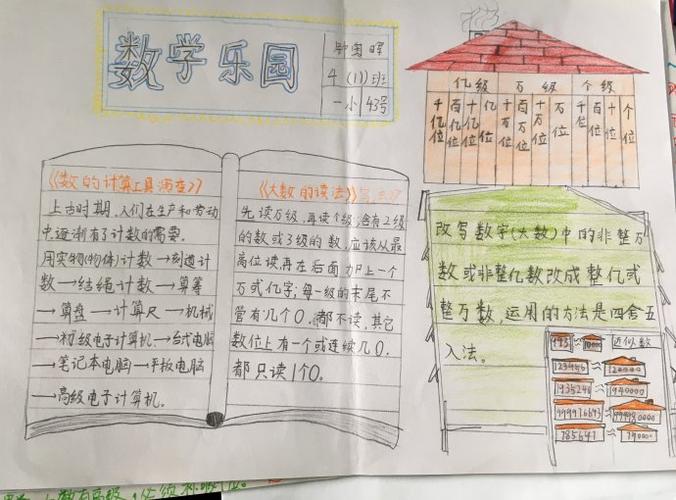 数学乐园
4(11)班
一小43号
亿级 万级 个级
千亿位 百亿位 十亿位 亿位 千万位 百万位 十万位 万位 千位 百位 十位 个位
《数的计算工具演变》
上古时期，人们在生产和劳动
中逐渐有了计数的需要。
用实物(物体)计数→刻道计
数→结绳计数→算筹
→算盘→计算尺→机械
→初级电子计算机→台式电脑
→笔记本电脑→平板电脑
→高级电子计算机。
《大数的读法》
先读万级，再读个级；含有2级
的数或3级的数，应该从最
高位读，再在后面加上一个
万或亿字；每一级的末尾不
管有几个0，都不读，其它
数位上有一个或连续几0，
都只读1个0。
改写数字(大数)中的非整万
数或非整亿数改成整亿或
整万数，运用的方法是四舍五
入法。
近似数
123456≈120000
1935246≈1940000
785641